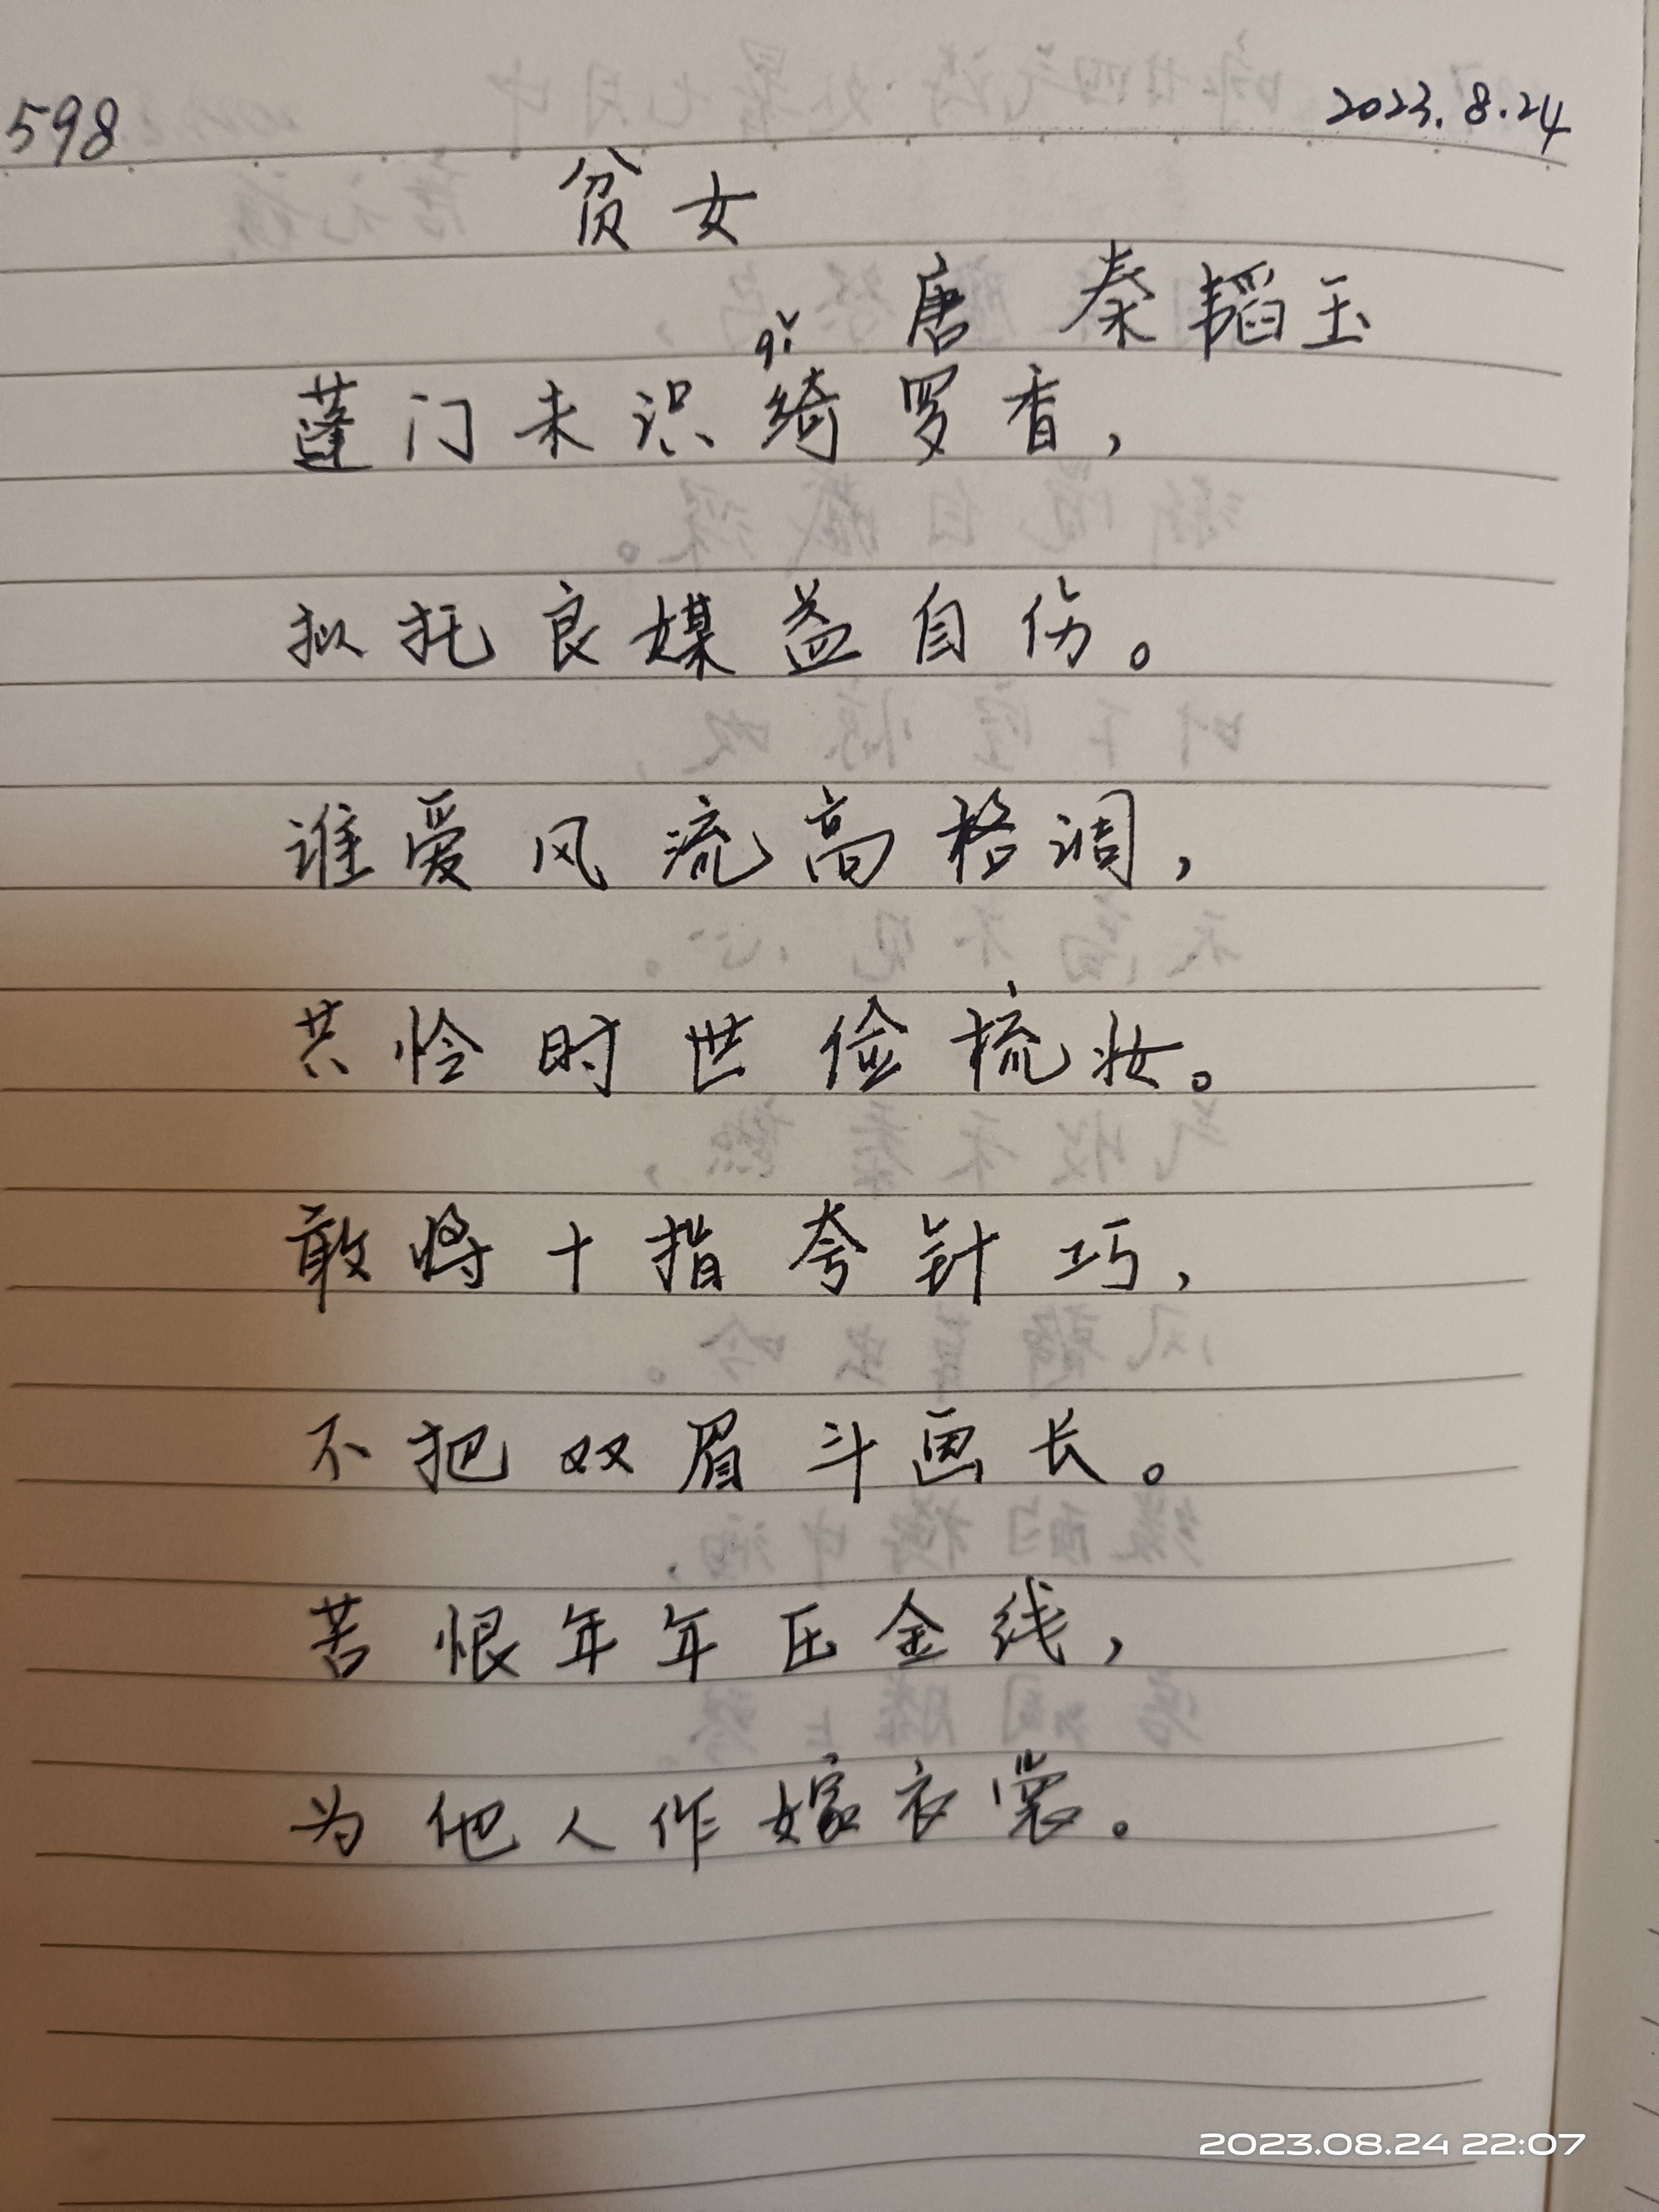 598 2023.8.24
贫女
唐 秦韬玉
qǐ
蓬门未识绮罗香，
拟托良媒益自伤。
谁爱风流高格调，
共怜时世俭梳妆。
敢将十指夸针巧，
不把双眉斗画长。
苦恨年年压金线，
为他人作嫁衣裳。
2023.08.24 22:07